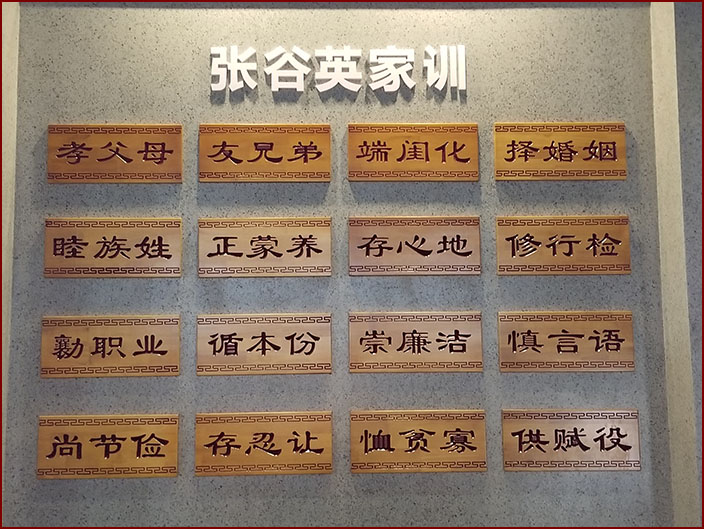 张谷英家训
孝父母 友兄弟 端闺化 择婚姻
睦族姓 正蒙养 存心地 修行检
勷职业 循本份 崇廉洁 慎言语
尚节俭 存忍让 恤贫寡 供赋役